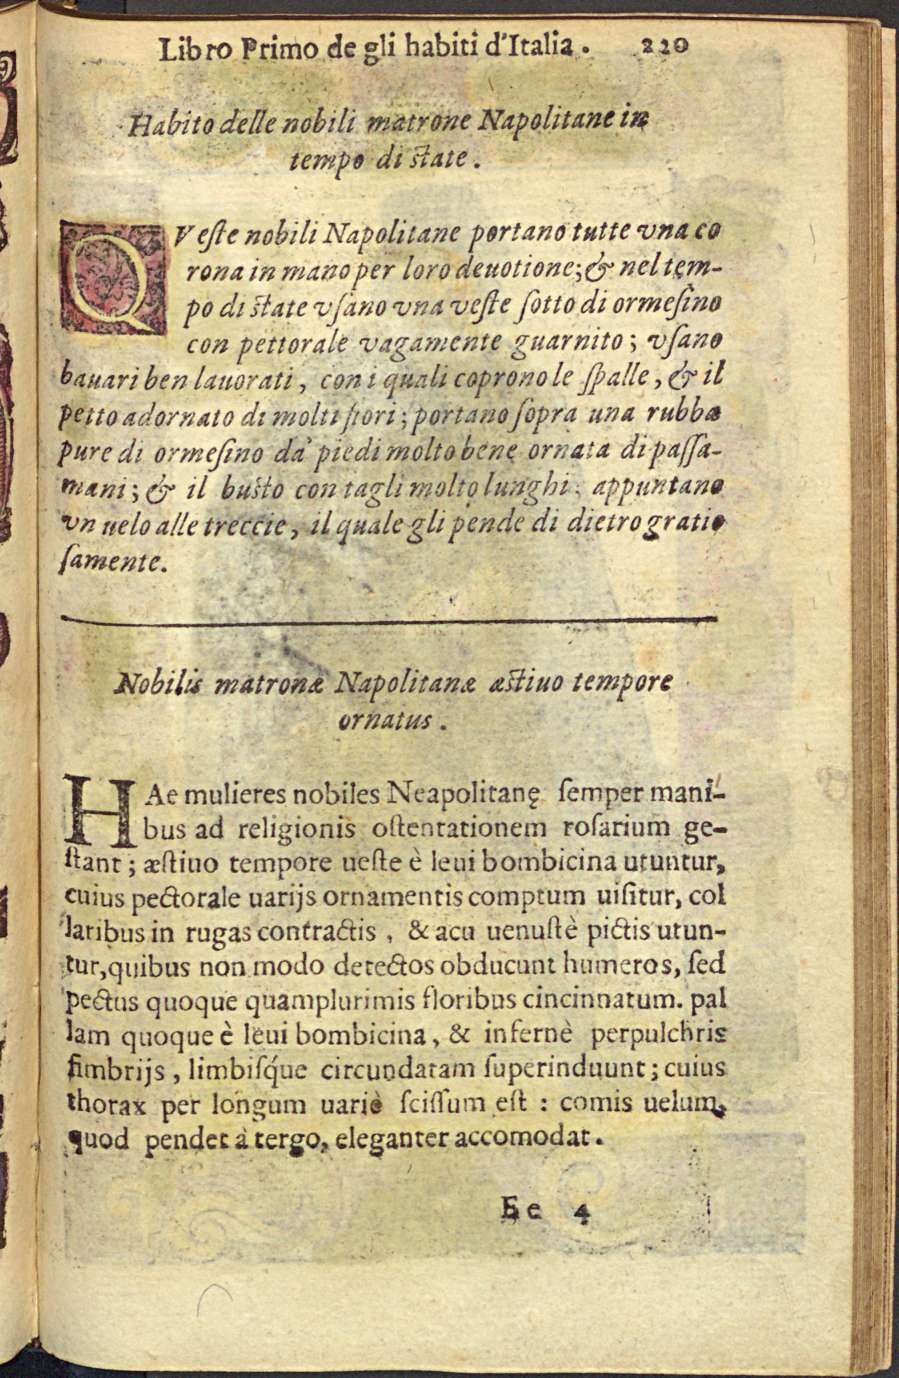 Libro Primo de gli habiti d'Italia. 220
Habito delle nobili matrone Napolitane in
tempo di state.
QVeste nobili Napolitane portano tutte vna co
rona in mano per loro deuotione; & nel tem-
po di state vsano vna veste sotto di ormesino
con pettorale vagamente guarnito; vsano
bauari ben lauorati, con i quali coprono le spalle, & il
petto adornato di molti fiori; portano sopra una rubba
pure di ormesino da' piedi molto bene ornata di passa-
mani; & il busto con tagli molto lunghi. appuntano
vn uelo alle treccie, il quale gli pende di dietro gratio
samente.
Nobilis matronæ Napolitanæ æstiuo tempore
ornatus.
HAe mulieres nobiles Neapolitanę semper mani-
bus ad religionis ostentationem rosarium ge-
stant; æstiuo tempore ueste è leui bombicina utuntur,
cuius pectorale uarijs ornamentis comptum uisitur, col
laribus in rugas contractis, & acu uenustè pictis utun-
tur, quibus non modo detectos obducunt humeros, sed
pectus quoque quamplurimis floribus cincinnatum. pal
lam quoque è leui bombicina, & infernè perpulchris
fimbrijs, limbisq́ue circundatam superinduunt; cuius
thorax per longum uariè scissum est: comis uelum,
quod pendet à tergo, eleganter accomodat.
Ee 4